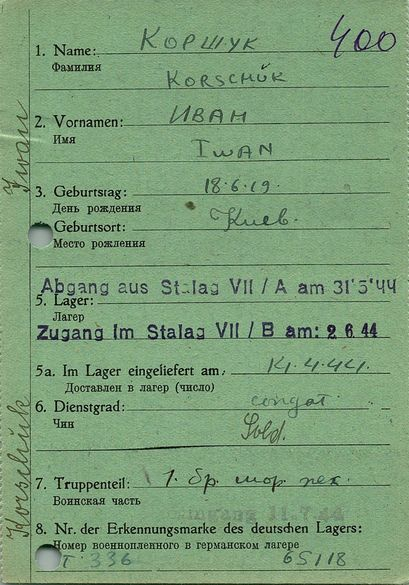 400
1. Name: КОРШУК
Фамилия
KORSCHÜK
2. Vornamen: ИВАН
Имя
IWAN
3. Geburtstag: 18.6.19.
День рождения
Geburtsort: Киев.
Место рождения
Abgang aus Stalag VII / A am 31'5'44
5. Lager:
Лагерь
Zugang im Stalag VII / B am: 2 6.44
5a. Im Lager eingeliefert am:
Доставлен в лагерь (число)
6. Dienstgrad: солдат.
Чин
Sold.
7. Truppenteil: 1. бр. мор. пех.
Воинская часть
11.7.44
8. Nr. der Erkennungsmarke des deutschen Lagers:
Номер военнопленного в германском лагере
336
Iwan
Korschük